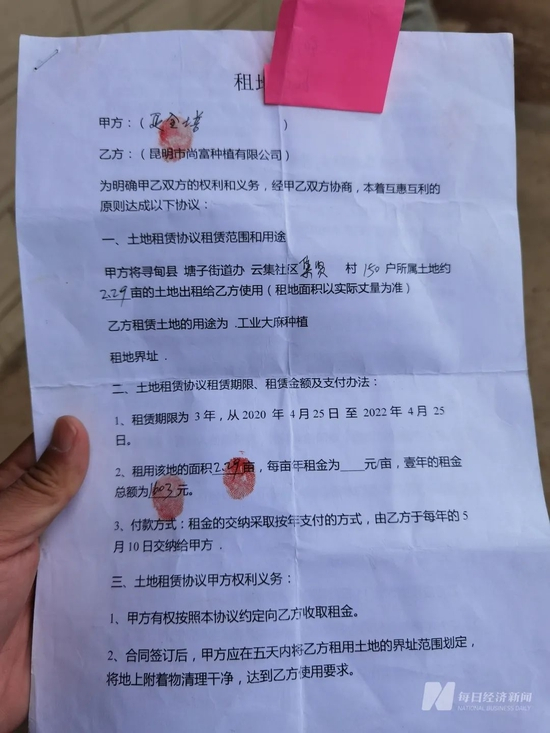 租地
甲方：（ 金 ）
乙方：（昆明市尚富种植有限公司）
为明确甲乙双方的权利和义务，经甲乙双方协商，本着互惠互利的
原则达成以下协议：
一、土地租赁协议租赁范围和用途
甲方将寻甸县 塘子街道办 云集社区集贤 村 150 户所属土地约
2.29亩的土地出租给乙方使用（租地面积以实际丈量为准）
乙方租赁土地的用途为 .工业大麻种植
租地界址 .
二、土地租赁协议租赁期限、租赁金额及支付办法：
1、租赁期限为 3年，从 2020 年 4月25日 至 2022年 4月 25
日。
2、租用该地的面积2.29亩，每亩年租金为____元/亩，壹年的租金
总额为1603元。
3、付款方式：租金的交纳采取按年支付的方式，由乙方于每年的5
月10日交纳给甲方 .
三、土地租赁协议甲方权利义务：
1、甲方有权按照本协议约定向乙方收取租金。
2、合同签订后，甲方应在五天内将乙方租用土地的界址范围划定，
将地上附着物清理干净，达到乙方使用要求。
每日经济新闻
NATIONAL BUSINESS DAILY